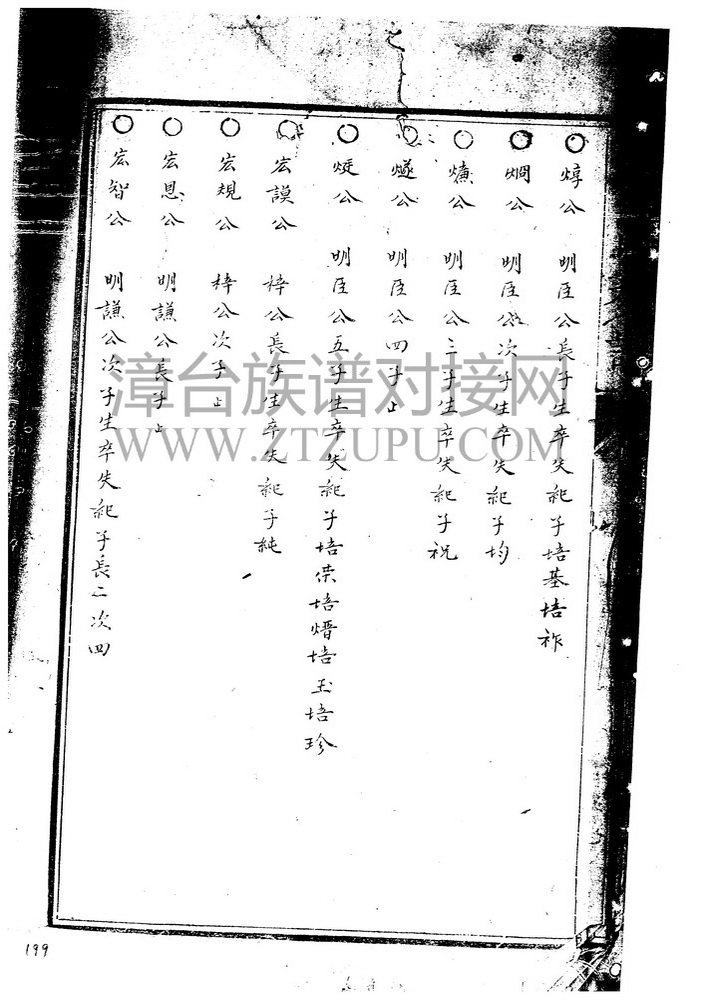 ○焞公 明臣公長子生卒失紀子培基培祚
○烱公 明臣公次子生卒失紀子均
○燫公 明臣公三子生卒失紀子祝
○燧公 明臣公四子止
○ 公 明臣公五子生卒失紀子培 培 培玉培珍
○宏謨公 梓公長子生卒失紀子純
○宏規公 梓公次子止
○宏恩公 明謙公長子止
○宏智公 明謙公次子生卒失紀子長二次四
漳台族谱对接网
WWW.ZTZUPU.COM
199